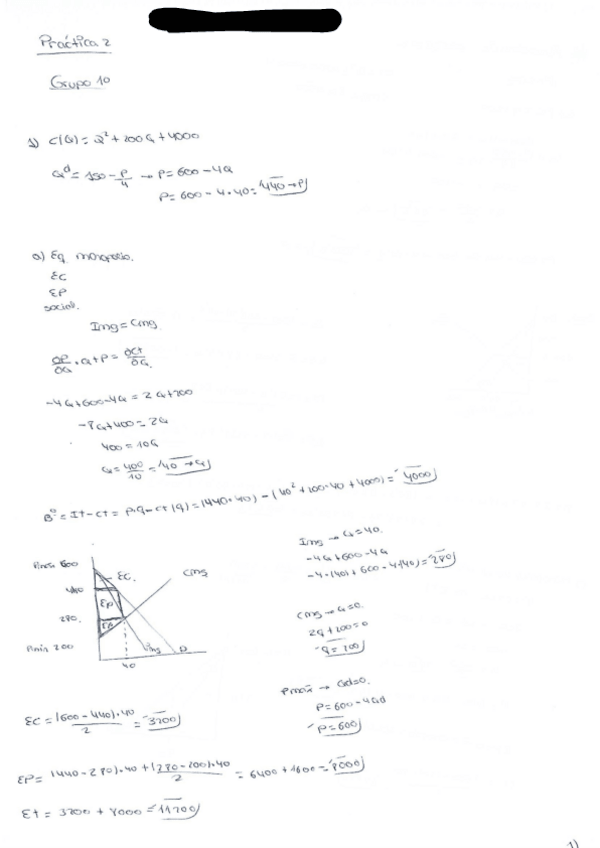 Práctica 2
Grupo 10
1) C(Q) = Q² + 200Q + 4000
Qᵈ = 150 - P/4 → P = 600 - 4Q
P = 600 - 4·40 = 440 → P
a) Eq. monopolio.
EC
EP
social.
Img = Cmg
∂P/∂Q · Q + P = ∂Ct/∂Q
-4Q + 600 - 4Q = 2Q + 200
-8Q + 400 = 2Q
400 = 10Q
Q = 400/10 = 40 → Q
Bº = It - Ct = P·Q - Ct(q) = (440·40) - (40² + 200·40 + 4000) = 4000
Pmáx 600
440
280
Pmín 200
EC
EP
EP
Cmg
Img
D
40
Img → Q = 40.
-4Q + 600 - 4Q
-4·(40) + 600 - 4·(40) = 280
Cmg → Q = 0.
2Q + 200 = 0
q = 200
Pmáx → Qd = 0.
P = 600 - 4Qd
P = 600
EC = (600 - 440)·40/2 = 3200
EP = (440 - 280)·40 + (280 - 200)·40/2 = 6400 + 1600 = 8000
Et = 3200 + 8000 = 11200
1)